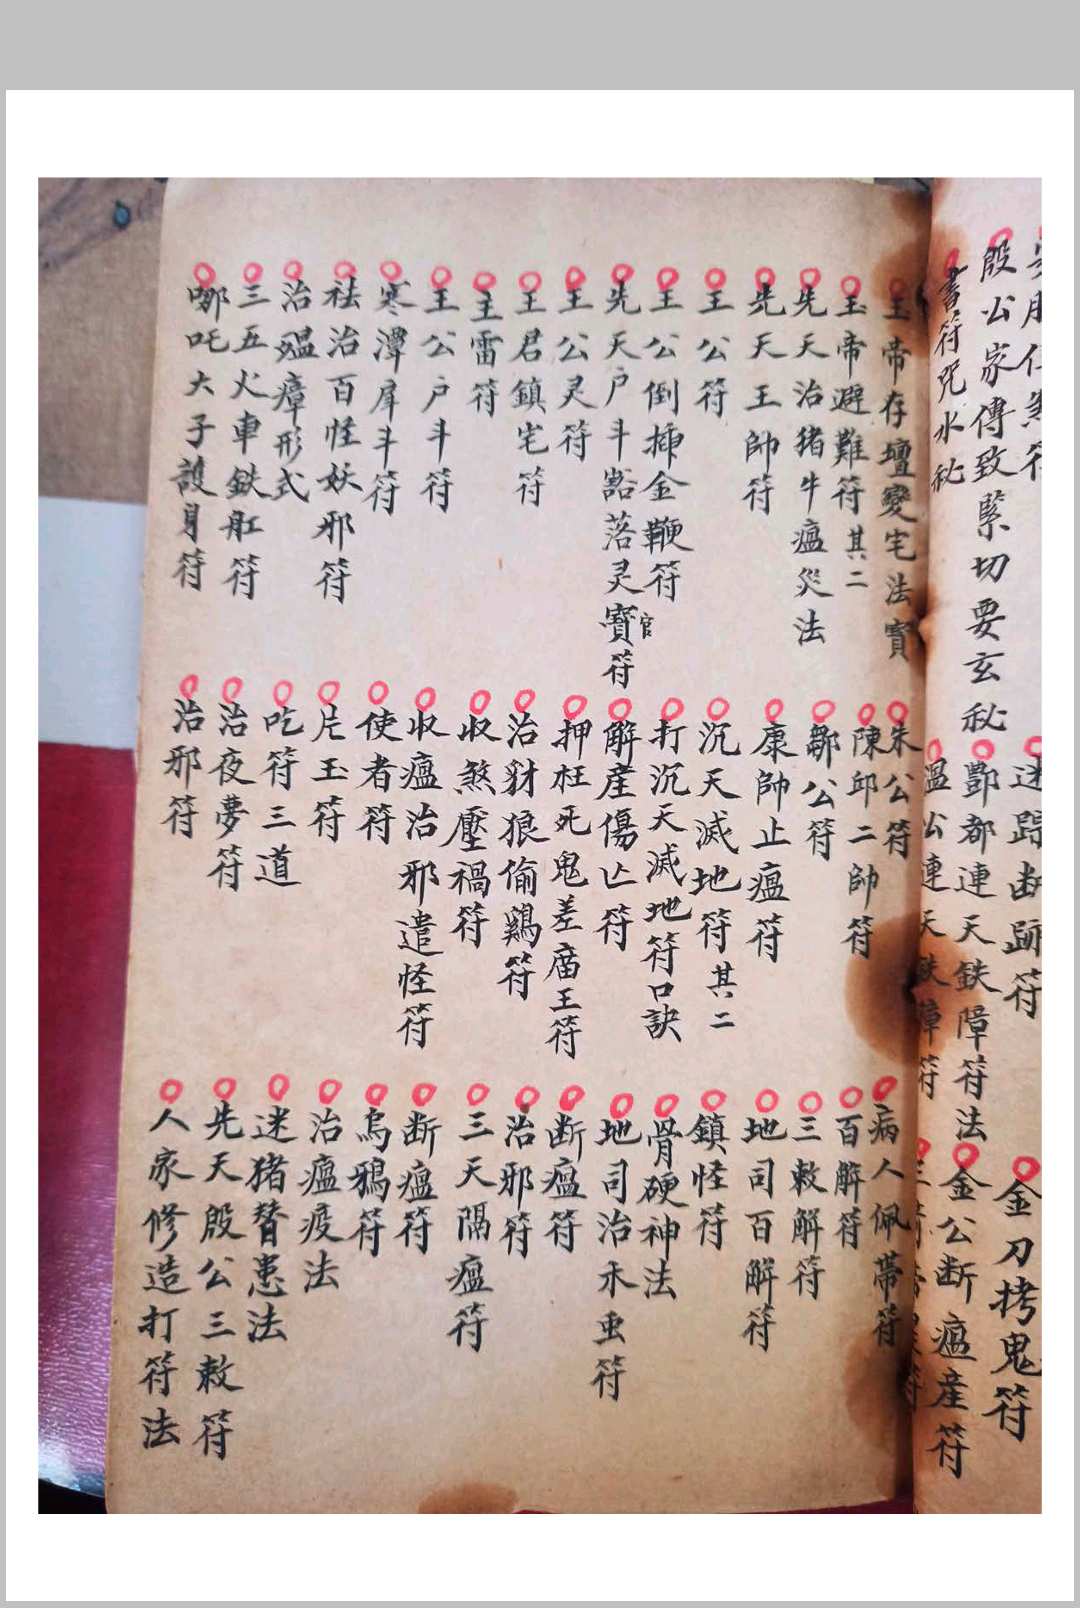 殷公家傳致緊切要玄秘
書符咒水秘
迷踪断跡符
酆都連天鉄障符法
溫公連天鉄障符
金刀拷鬼符
金公断瘟産符
玉帝存壇變宅法寳
玉帝避難符其二
先天治猪牛瘟災法
先天王帥符
王公符
王公倒插金鞭符
先天户斗豁落灵寳符
官
王公灵符
王君鎮宅符
主雷符
王公户斗符
寒潭犀斗符
祛治百怪妖邪符
治瘟瘴形式
三五火車鉄肛符
哪吒大子護身符
朱公符
陳邱二帥符
鄒公符
康帥止瘟符
沉天滅地符其二
打沉天滅地符口訣
解産傷亡符
押枉死鬼差庿王符
治豺狼偷鷄符
収煞壓禍符
収瘟治邪遣怪符
使者符
片玉符
吃符三道
治夜夢符
治邪符
病人佩帯符
百解符
三敕解符
地司百解符
鎮怪符
骨硬神法
地司治禾虫符
断瘟符
治邪符
三天隔瘟符
断瘟符
烏鴉符
治瘟疫法
迷猪替患法
先天殷公三敕符
人家修造打符法